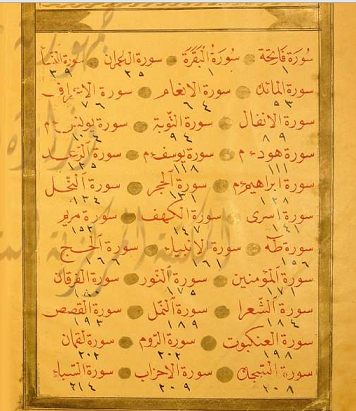 سورة فاتحة سورة البقرة سورة ال عمران سورة النسا
١ ٢٥ ٣٩
سورة المائدة سورة الانعام سورة الاعراف
٥٣ ٦٤ ٧٦
سورة الانفال سورة التوبة سورة يونس م
٨٩ ٩٤
سورة هود م سورة يوسف م سورة الرعد
١١١
سورة ابراهيم م سورة الحجر سورة النحل
١٣٤
سورة اسرى سورة الكهف سورة مريم
١٥٣
سورة طه سورة الانبياء سورة الحج
١٥٦ ١٦١
سورة المؤمنين سورة النور سورة الفرقان
سورة الشعرا سورة النمل سورة القصص
١٨٤ ١٨٩ ١٩٣
سورة العنكبوت سورة الروم سورة لقمان
١٩٨ ٢٠٢
سورة الاحزاب سورة السباء
٢٠٨ ٢٠٩ ٢١٤